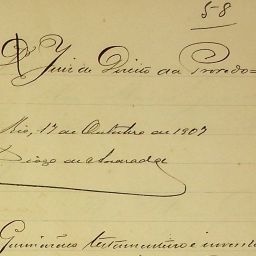 5-8
Dr Juiz de Direito da Provedo=
Rio, 17 de Outubro de 1907
Diogo de Andrade
Guimarães testamenteiro e invent